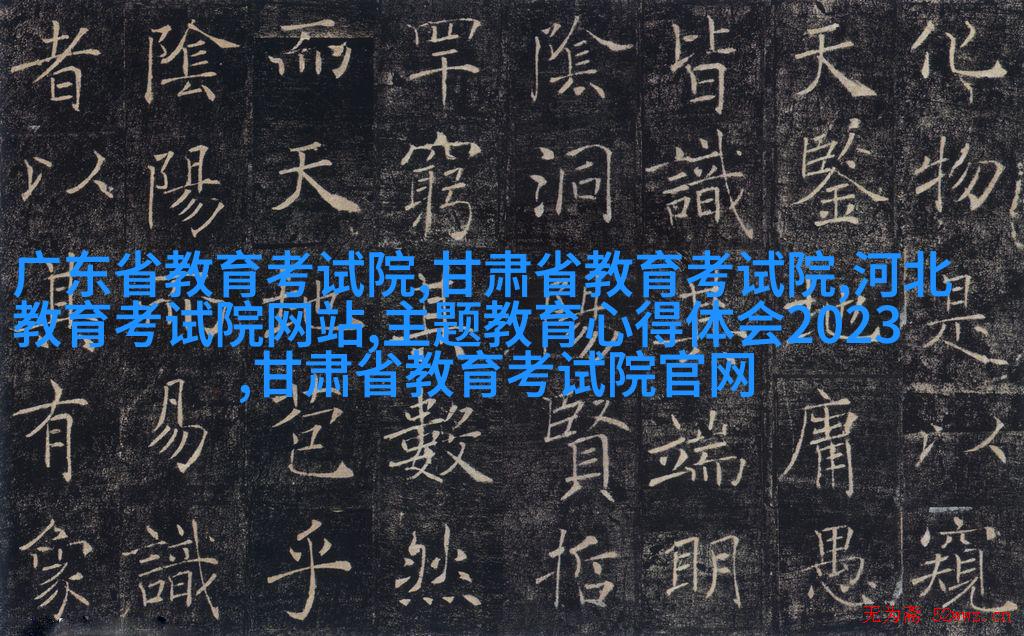 广东省教育考试院,甘肃省教育考试院,河北
教育考试院网站,主题教育心得体会2023
,甘肃省教育考试院官网
化物是以窺
天鑒地庸愚
皆識其端明
陰洞陽賢哲
罕窮其數然
而天地苞乎
陰陽而易識
者以其有象
无为斋 52wwz.cn